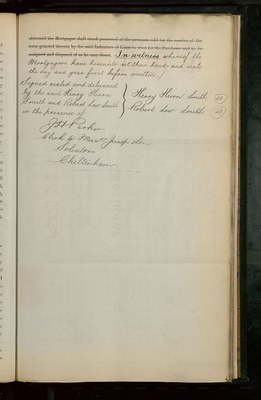 aforesaid the Mortgagor shall stand possessed of the premises
term granted thereby by the said Indenture of Lease in trust for the Purchaser and to be
assigned and disposed of as he may direct. In witness whereof the
Mortgagors have hereunto set their hands and seals
the day and year first before written /
Signed sealed and delivered
by the said Henry Heron
Smith and Robert Law Smith
in the presence of
Henry Heron Smith
Robert Law Smith
Parker
Clerk to Messrs Jessop
Solicitors
Cheltenham